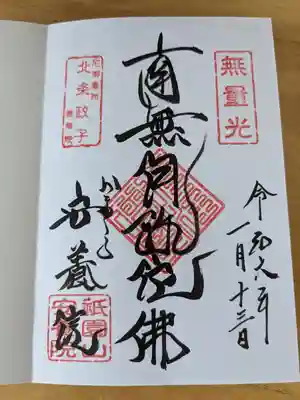 無量光
令和六年
一月十三日
南無阿弥陀佛
北条政子
かまくら
安養院
祇園山